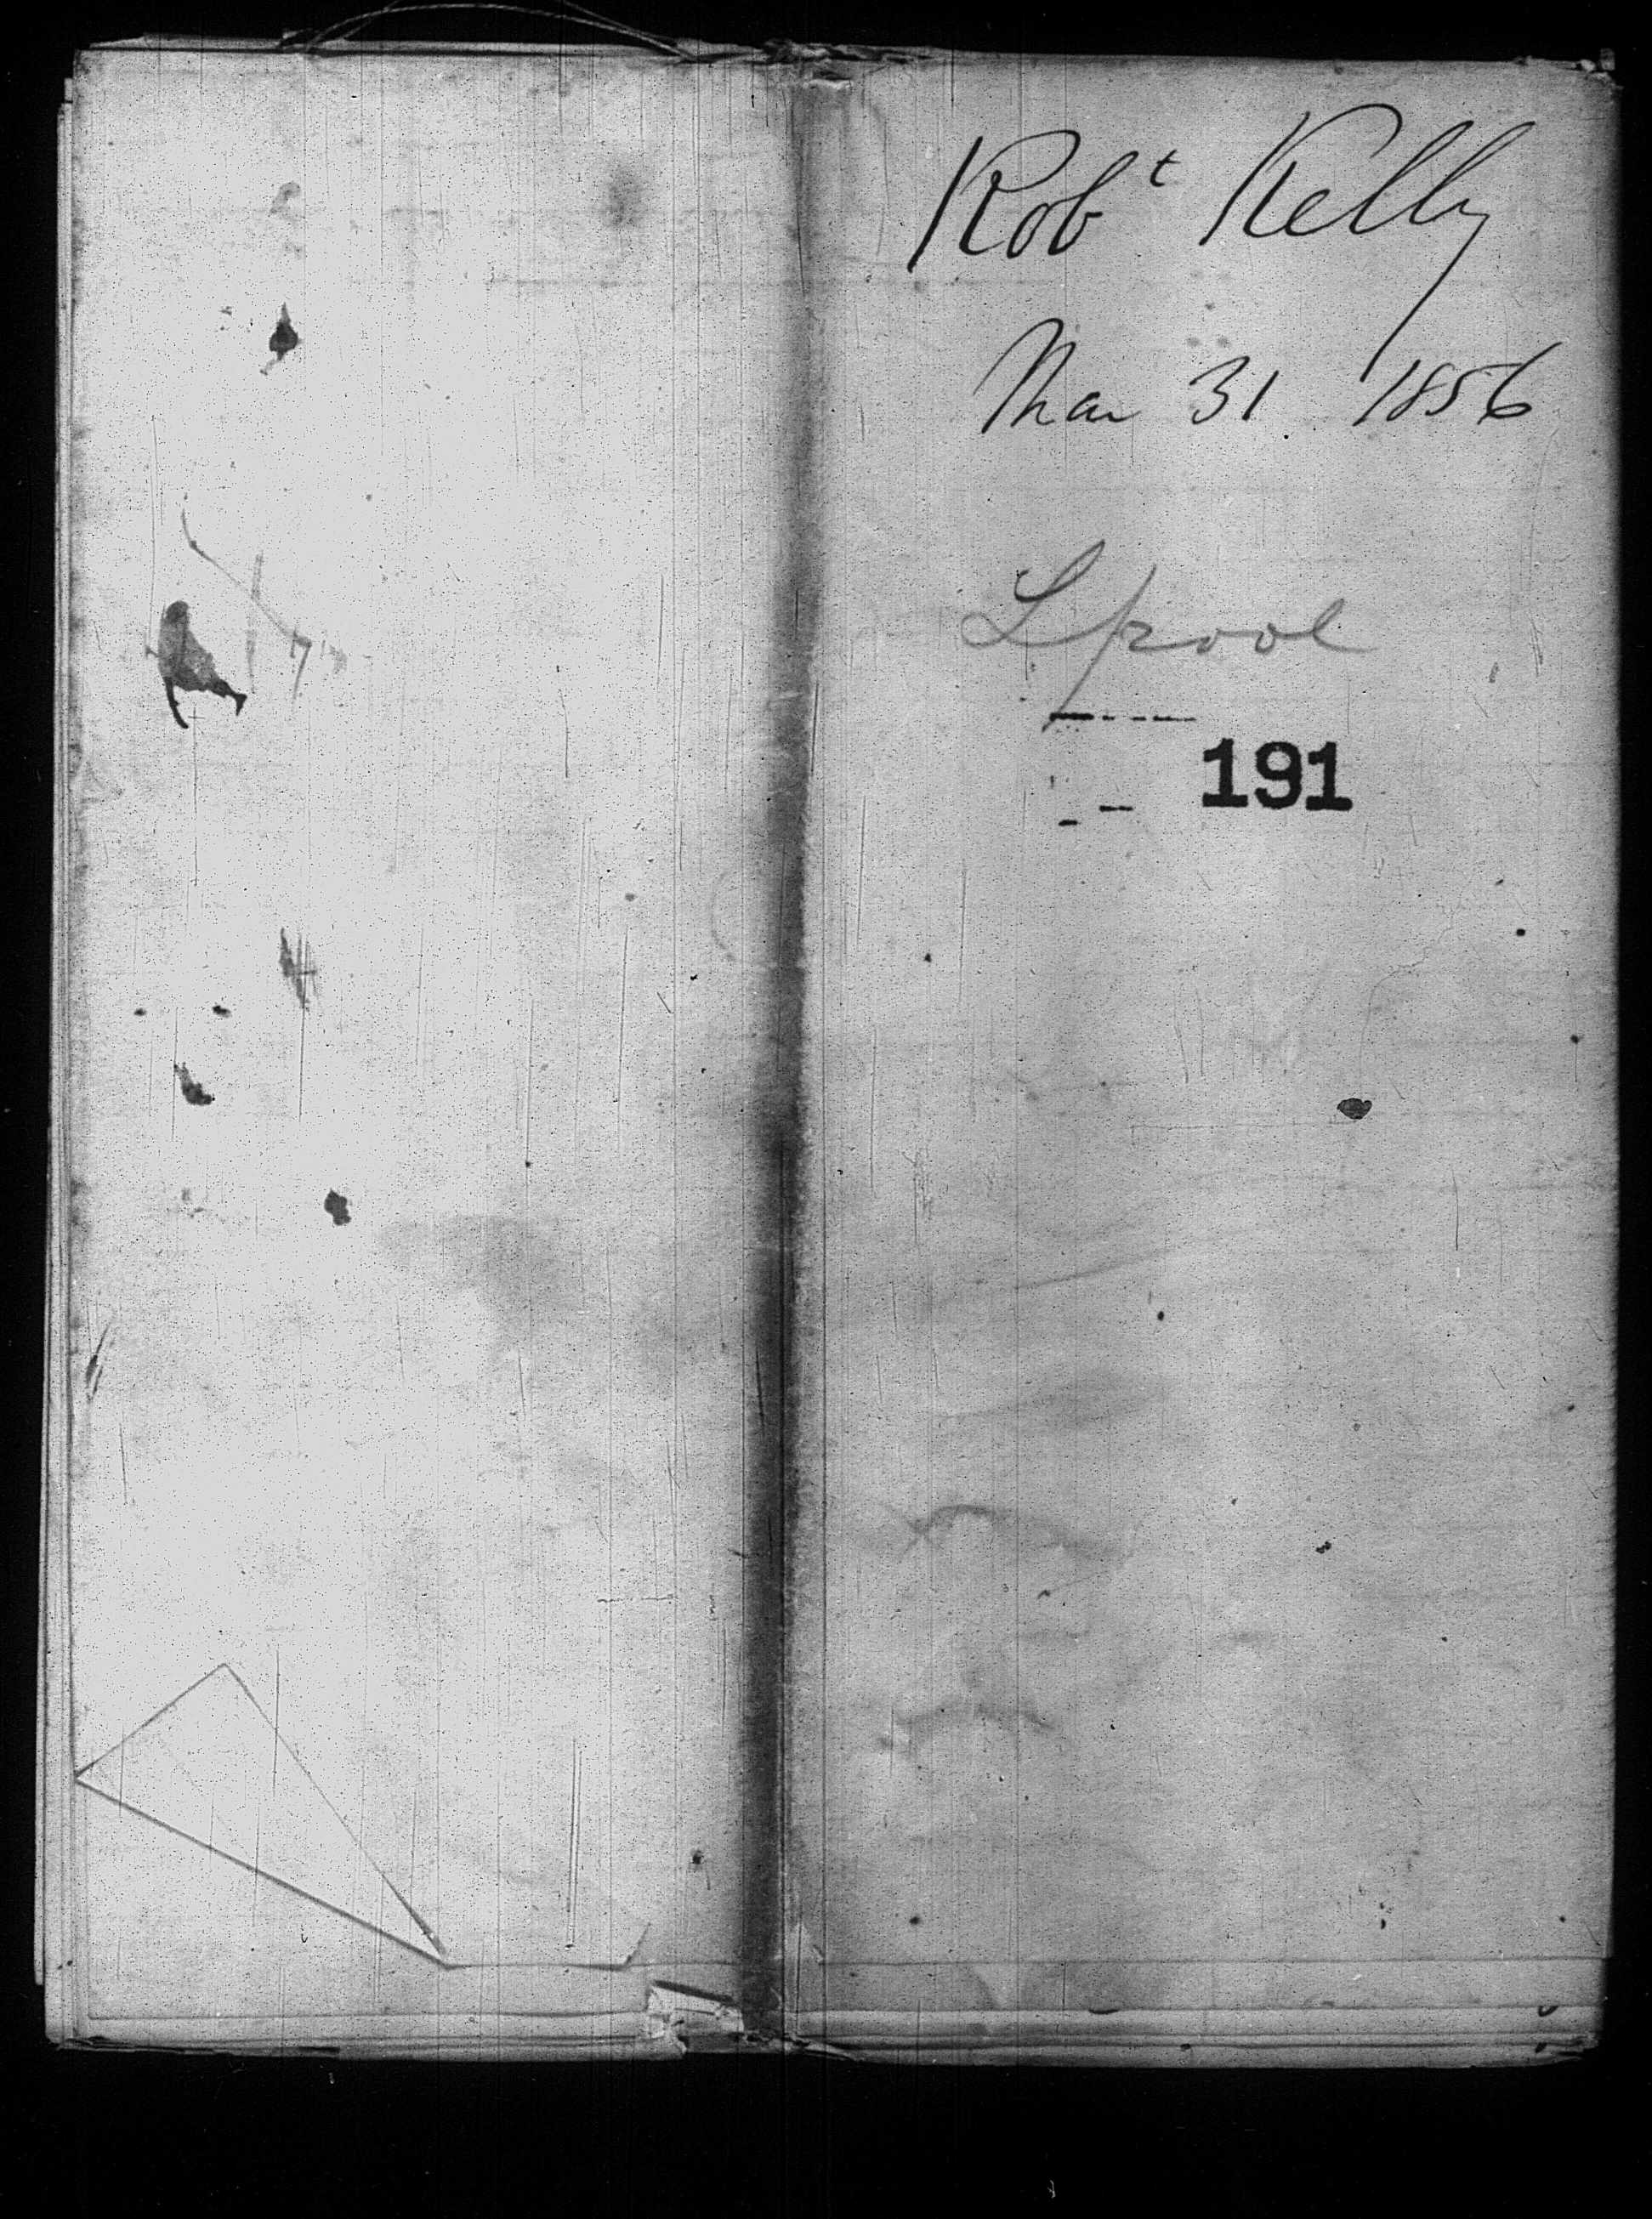 Robt Kelly
Mar 31 1856
Lpool
191